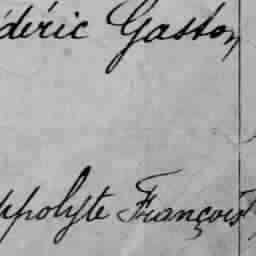 déric Gaston
ppolyte François